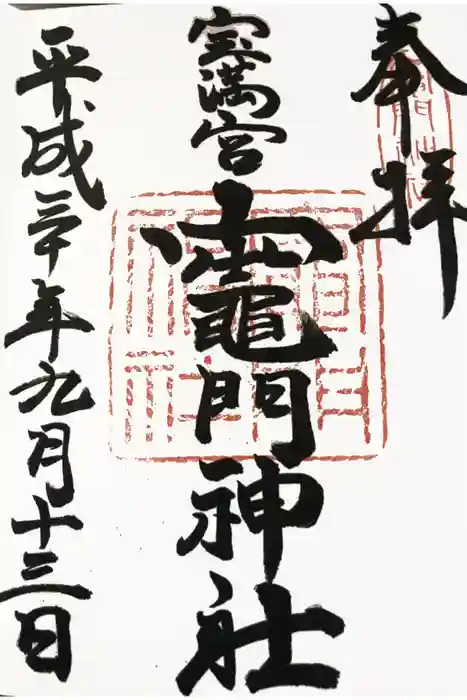 奉拝
宝満宮
竈門神社
平成三十年九月十三日